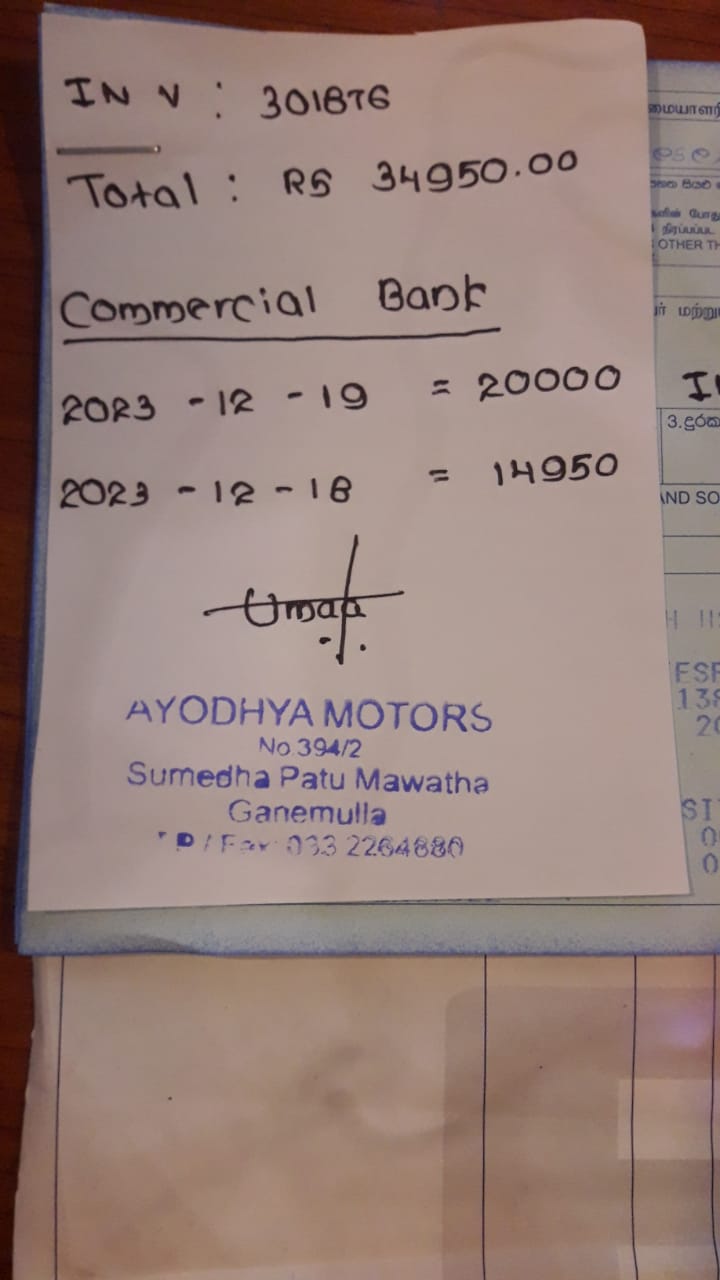 INV : 301876
Total : RS 34950.00
Commercial Bank
2023 - 12 - 19 = 20000
2023 - 12 - 18 = 14950
AYODHYA MOTORS
No.394/2
Sumedha Patu Mawatha
Ganemulla
/ Fax: 033 2264680
OTHER TH
3.දුරක
AND SO
ESP
138
20
ST
0
0